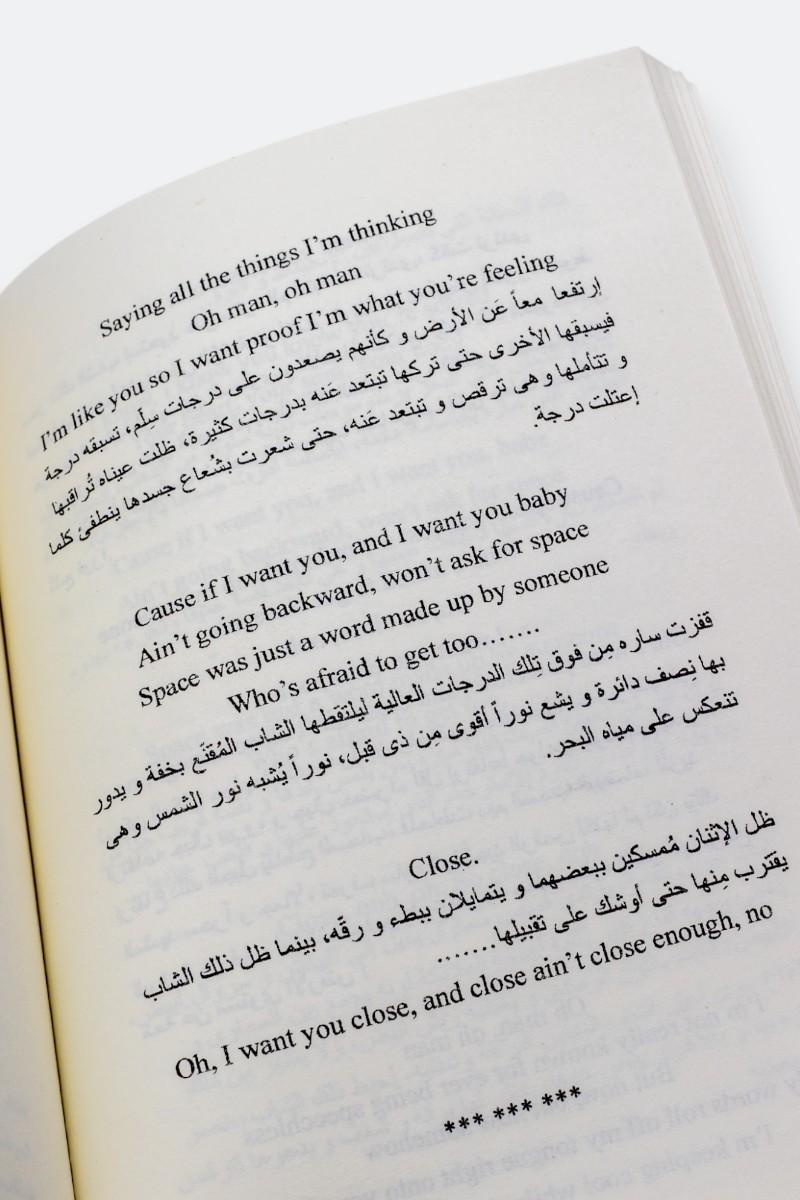 Saying all the things I'm thinking
Oh man, oh man
I'm like you so I want proof I'm what you're feeling
إرتفعا معاً عَن الأرض و كأنهم يصعدون على درجات سِلّم، تسبقه درجة
فيسبقها الأخرى حتى تركها تبتعد عَنه بدرجات كثيرة، ظلت عيناه تُراقبها
و تتأملها و هى ترقص و تبتعد عَنه، حتى شعرت بشُعاع جسدها ينطفئ كلما
إعتلت درجة.
Cause if I want you, and I want you baby
Ain't going backward, won't ask for space
Space was just a word made up by someone
Who's afraid to get too…….
قفزت ساره مِن فوق تِلك الدرجات العالية ليلتقطها الشاب المُقنّع بخفة و يدور
بها نِصف دائرة و يشع نوراً أقوى مِن ذى قبل، نوراً يُشبه نور الشمس و هى
تنعكس على مياه البحر.
Close.
ظل الإثنان مُمسكين ببعضهما و يتمايلان ببطء و رقّه، بينما ظل ذلك الشاب
يقترب مِنها حتى أوشك على تقبيلها.......
Oh, I want you close, and close ain't close enough, no
*** *** ***